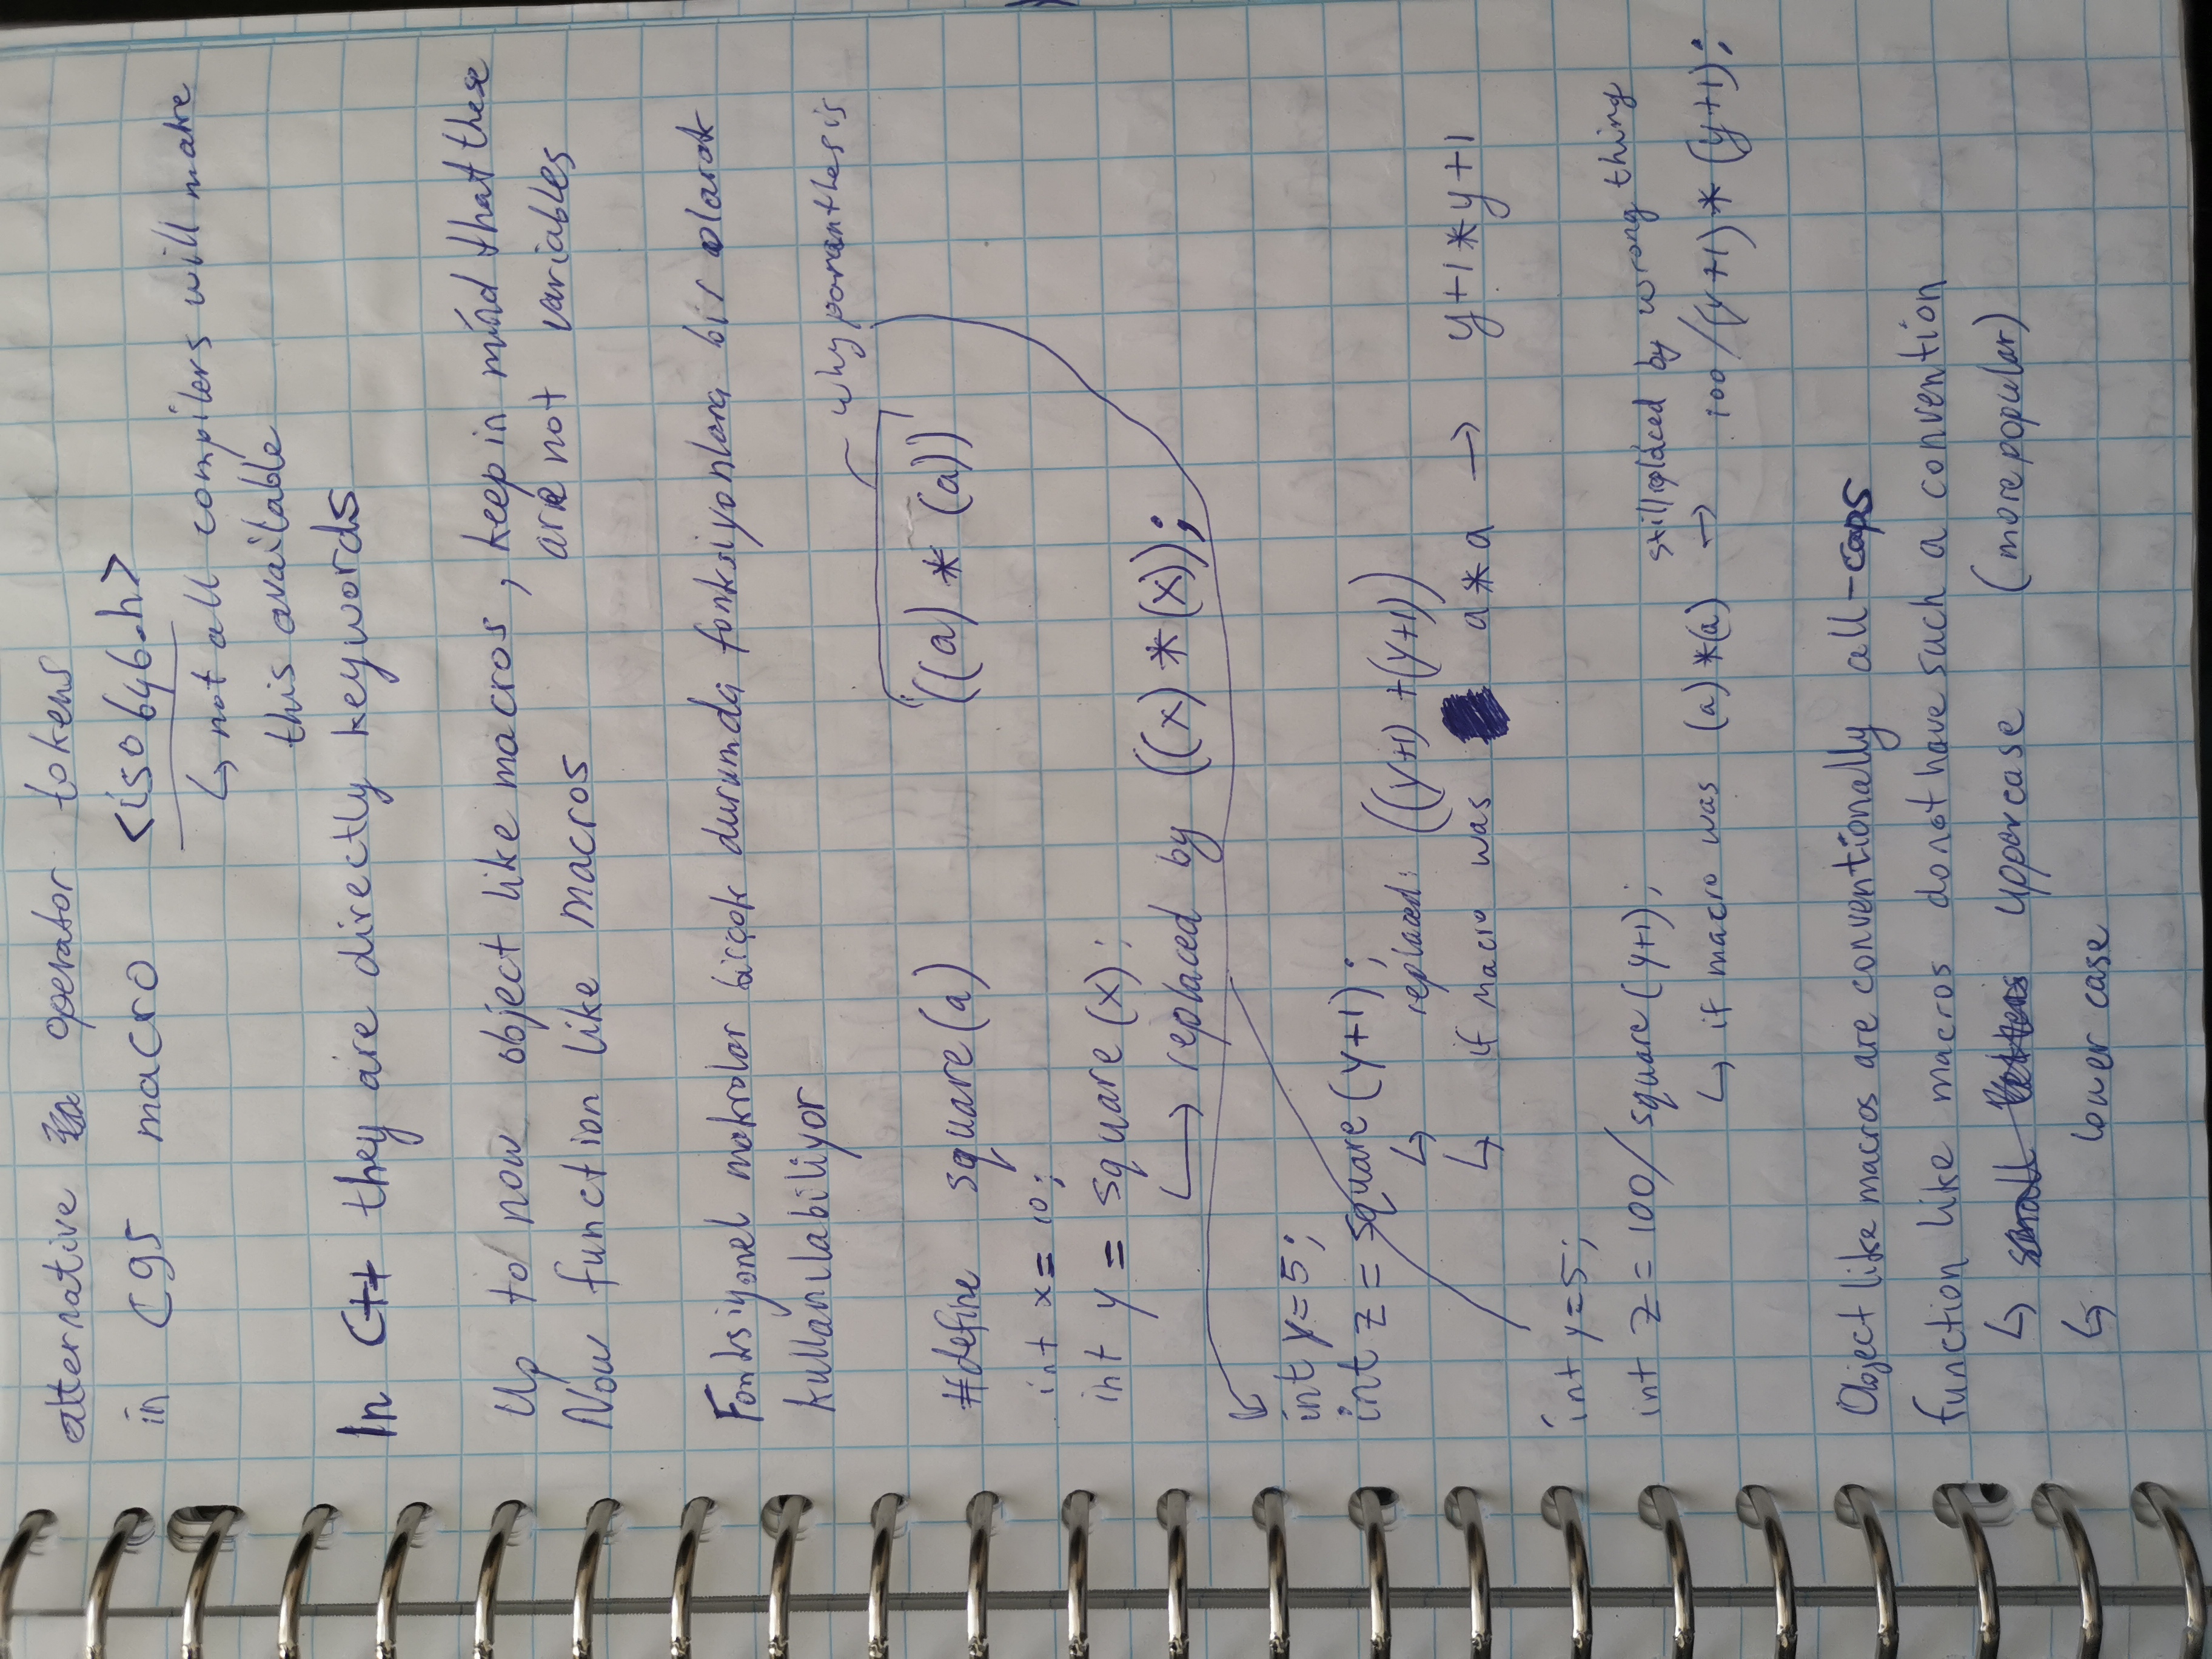 alternative operator tokens
in C95 macro <iso646.h>
↳ not all compilers will make
this available
In C++ they are directly keywords
Up to now object like macros, keep in mind that these
are not variables
Now function like macros
Fonksiyonel makrolar birçok durumda fonksiyonlara bir olarak
kullanılabiliyor
why paranthesis
#define square(a) ((a) * (a))
int x = 10;
int y = square(x);
↳ replaced by ((x) * (x));
int y=5;
int z = square(y+1);
↳ replaced: ((y+1) +(y+1))
↳ if macro was a * a → y+1*y+1
int y=5;
int z = 100/square(y+1);
still replaced by wrong thing
↳ if macro was (a) *(a) → 100/(y+1) * (y+1);
Object like macros are conventionally all-caps
function like macros do not have such a convention
↳ small letters uppercase (more popular)
↳ lower case